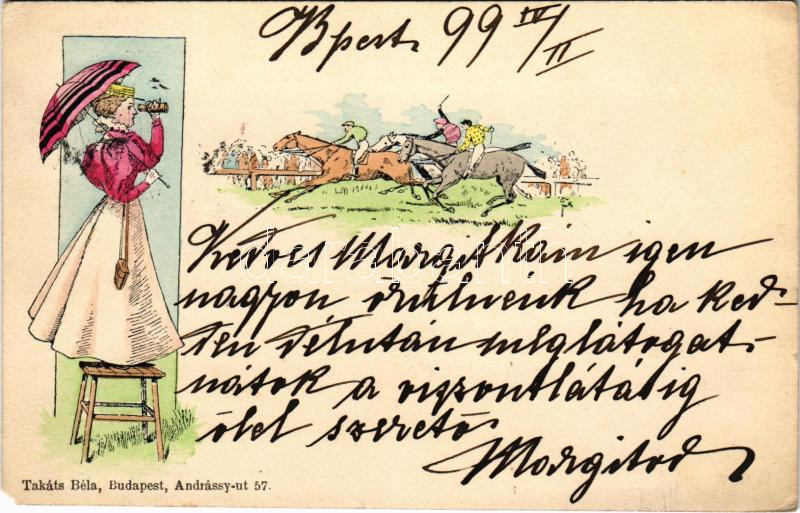 Bpest. 99 IV/II
Kedves Margitkáim igen
nagyon örülnénk ha ked-
den délután meglátogat-
nátok a viszontlátásig
ölel szerető
Margitod
Takáts Béla, Budapest, Andrássy-ut 57.